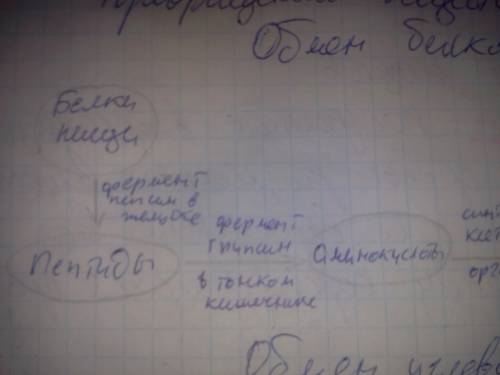 Обмен белко
Белки
пищи
фермент
пепсин в
желудке
Пептиды
фермент
трипсин
в тонком
кишечнике
Аминокислоты
синт
клет
орг
Обмен углево